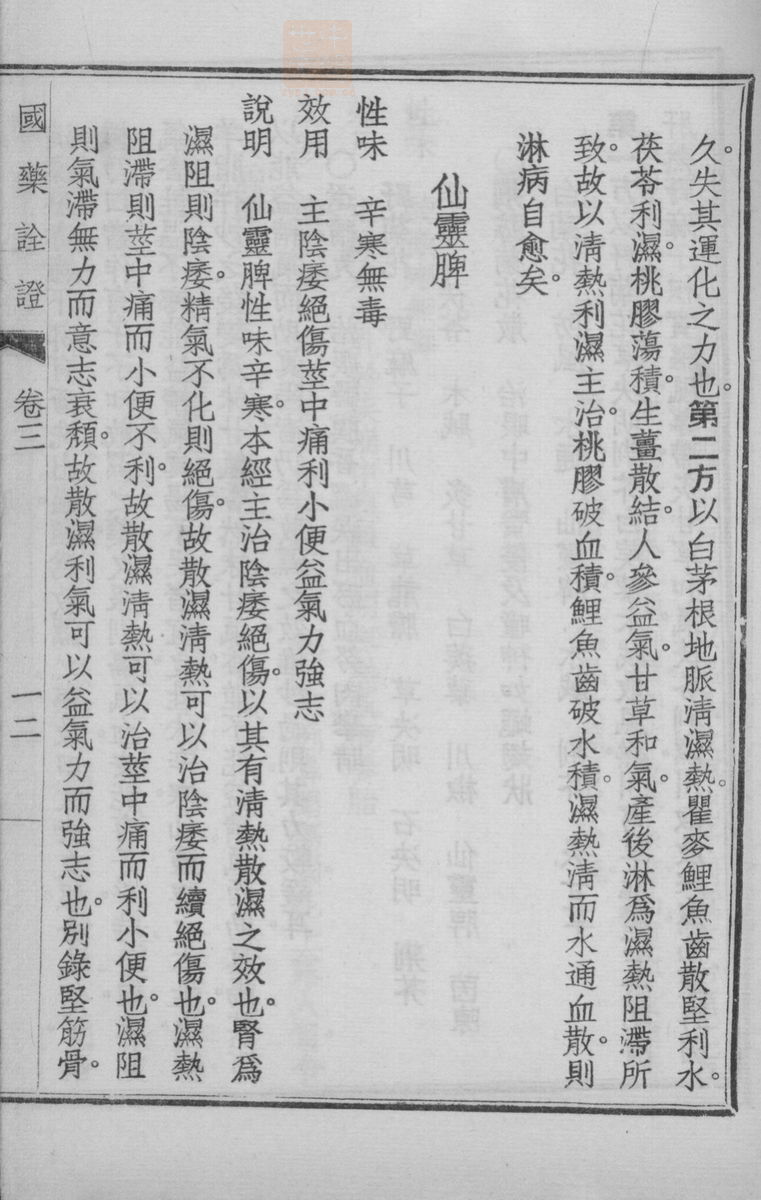 久失其運化之力也。第二方以白茅根地脈清濕熱。瞿麥鯉魚齒散堅利水。
茯苓利濕。桃膠蕩積。生薑散結。人參益氣。甘草和氣。產後淋爲濕熱阻滯所
致。故以清熱利濕主治。桃膠破血積。鯉魚齒破水積。濕熱清而水通血散。則
淋病自愈矣。
仙靈脾
性味　辛寒無毒
效用　主陰痿絕傷莖中痛利小便益氣力強志
說明　仙靈脾性味辛寒。本經主治陰痿絕傷。以其有清熱散濕之效也。腎爲
濕阻則陰痿。精氣不化則絕傷。故散濕清熱可以治陰痿而續絕傷也。濕熱
阻滯則莖中痛而小便不利。故散濕清熱可以治莖中痛而利小便也。濕阻
則氣滯無力而意志衰頹。故散濕利氣可以益氣力而強志也。別錄堅筋骨。
國藥詮證　卷三　一二